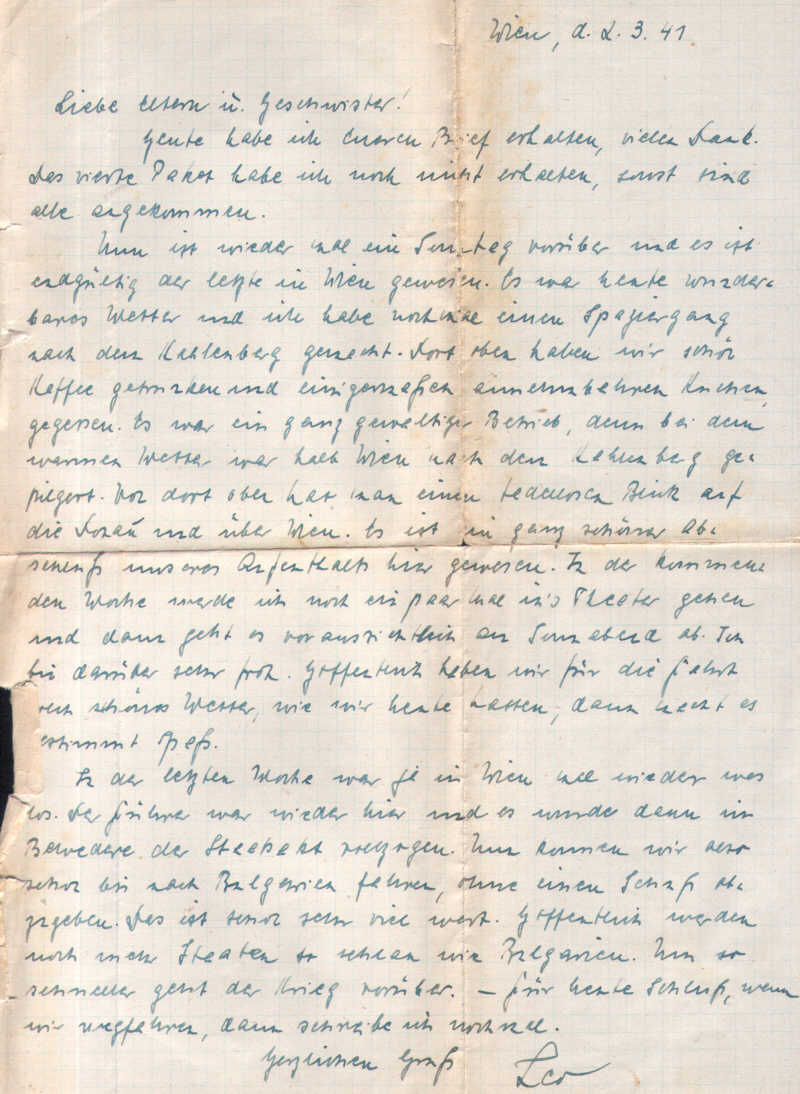 Wien, d. 2. 3. 41
Liebe Eltern u. Geschwister!
Heute habe ich Eueren Brief erhalten, vielen Dank.
Das vierte Paket habe ich noch nicht erhalten, sonst sind
alle angekommen.
Nun ist wieder mal ein Sonntag vorüber und es ist
endgültig der letzte in Wien gewesen. Es war heute wunder-
bares Wetter und ich habe nochmal einen Spaziergang
nach dem Kahlenberg gemacht. Dort oben haben wir schön
Kaffee getrunken und einigermaßen annehmbahren Kuchen
gegessen. Es war ein ganz gewaltiger Betrieb, denn bei dem
warmen Wetter war halb Wien nach dem Kahlenberg ge-
pilgert. Von dort oben hat man einen tadellosen Blick auf
die Donau und über Wien. Es ist ein ganz schöner Ab-
schluß unseres Aufenthalts hier gewesen. In der kommen-
den Woche werde ich noch ein paar mal in's Theater gehen
und dann geht es voraussichtlich am Sonnabend ab. Ich
bin darüber sehr froh. Hoffentlich haben wir für die Fahrt
auch schönes Wetter, wie wir heute hatten, dann macht es
bestimmt Spaß.
In der letzten Woche war ja in Wien mal wieder was
los. Der Führer war wieder hier und es wurde dann im
Belvedere der Staatsakt vollzogen. Nun können wir also
schon bis nach Bulgarien fahren, ohne einen Schuß ab-
zugeben. Das ist schon sehr viel wert. Hoffentlich werden
noch mehr Staaten so schlau wie Bulgarien. Um so
schneller geht der Krieg vorüber. — Für heute Schluß, wenn
wir wegfahren, dann schreibe ich nochmal.
Herzlichen Gruß Leo